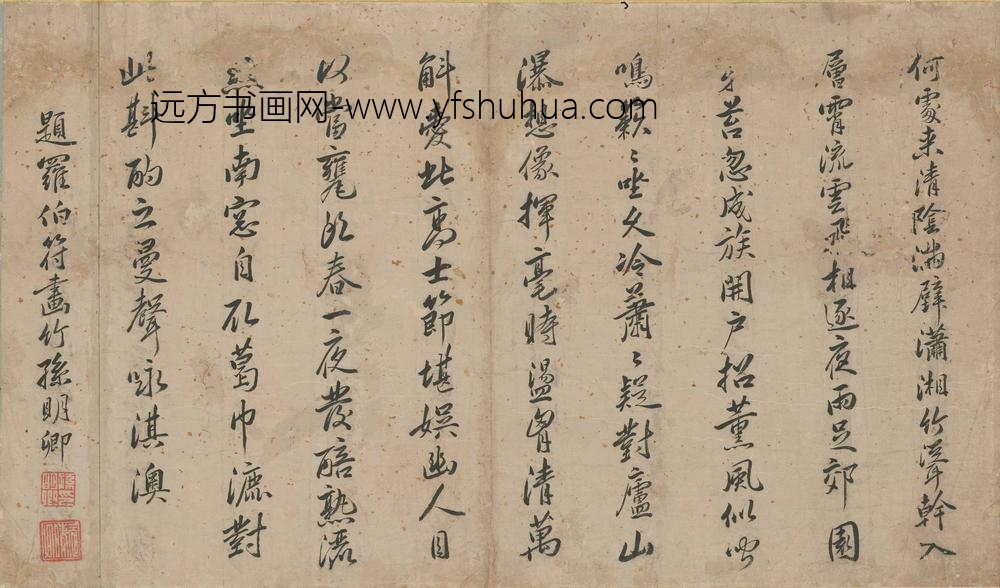 何處来清陰滿壁瀟湘竹聳幹入
層霄流雲飛相逐夜雨足郊園
苔忽成族開戶招薰風似聞
鳴簌〻坐久冷蕭〻疑對廬山
瀑想像揮毫時盪胷清萬
斛愛此高士節堪娛幽人目
以當甕頭春一夜發醅熟
坐南窓自取葛巾漉對
此斟酌之曼聲詠淇澳
題羅伯符畫竹孫明卿
远方书画网-www.yfshuhua.com